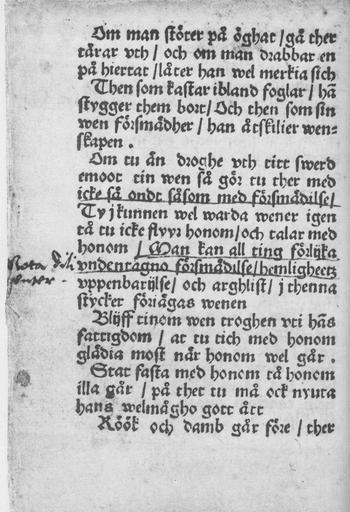 Om man stöter på öghat / gå ther
tårar vth / och om man drabbar en
på hiertat / låter han wel merkia sich
Then som kastar ibland foglar / hā
stygger them bort / Och then som sin
wen försmädher / han åtskilier wen-
skapen .
Om tu än droghe vth titt swerd
emoot tin wen så gör tu ther med
icke så ondt såsom med försmädilse /
Ty j kunnen wel warda wener igen
tå tu icke flyyr honom / och talar med
honom / Man kan all ting förlijka
vndentagno försmädilse / hemligheetz
vppenbarilse / och arghlist / j thenna
stycker föriägas wenen
Blijff tinom wen troghen vti hās
fattigdom / at tu tich med honom
glädia most när honom wel går .
Statt fasta med honom tå honom
illa går / på thet tu må ock nyuta
hans welmågho gott ått
Röök och damb går före / ther
Nota